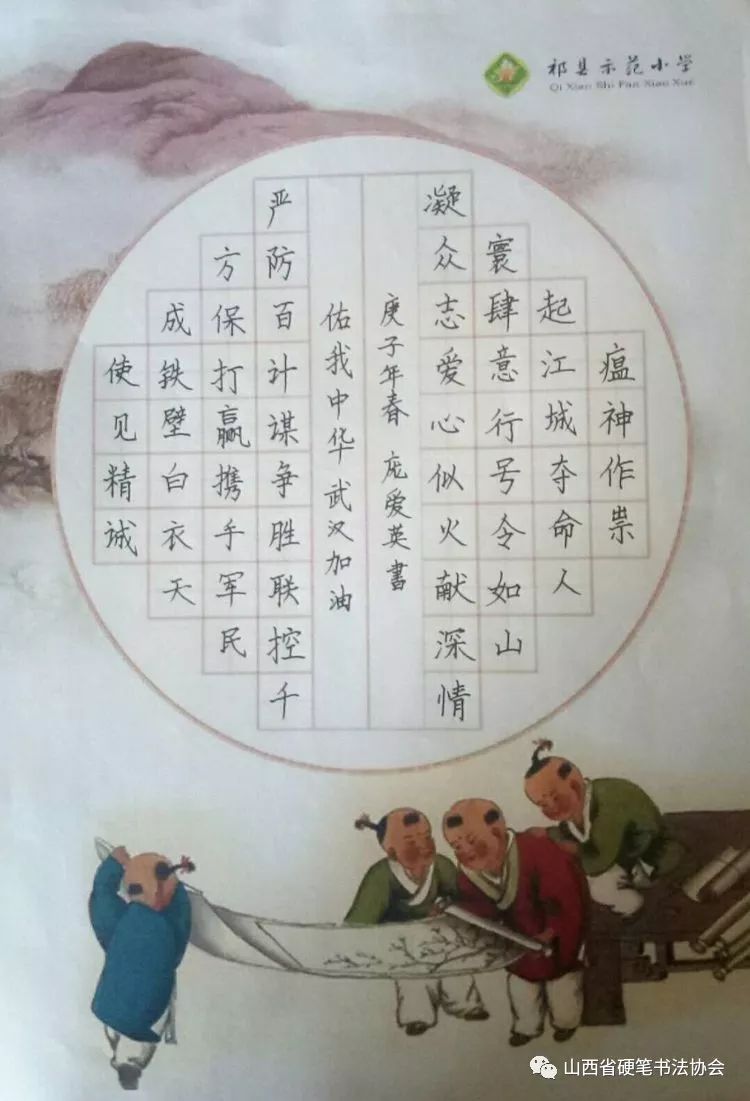 祁县示范小学
Qi Xian Shi Fan Xiao Xue
瘟神作祟
起江城夺命人
寰肆意行号令如山
凝众志爱心似火献深情
庚子年春 庞爱英書
佑我中华武汉加油
严防百计谋争胜联控千
方保打赢携手军民
成铁壁白衣天
使见精诚
山西省硬笔书法协会